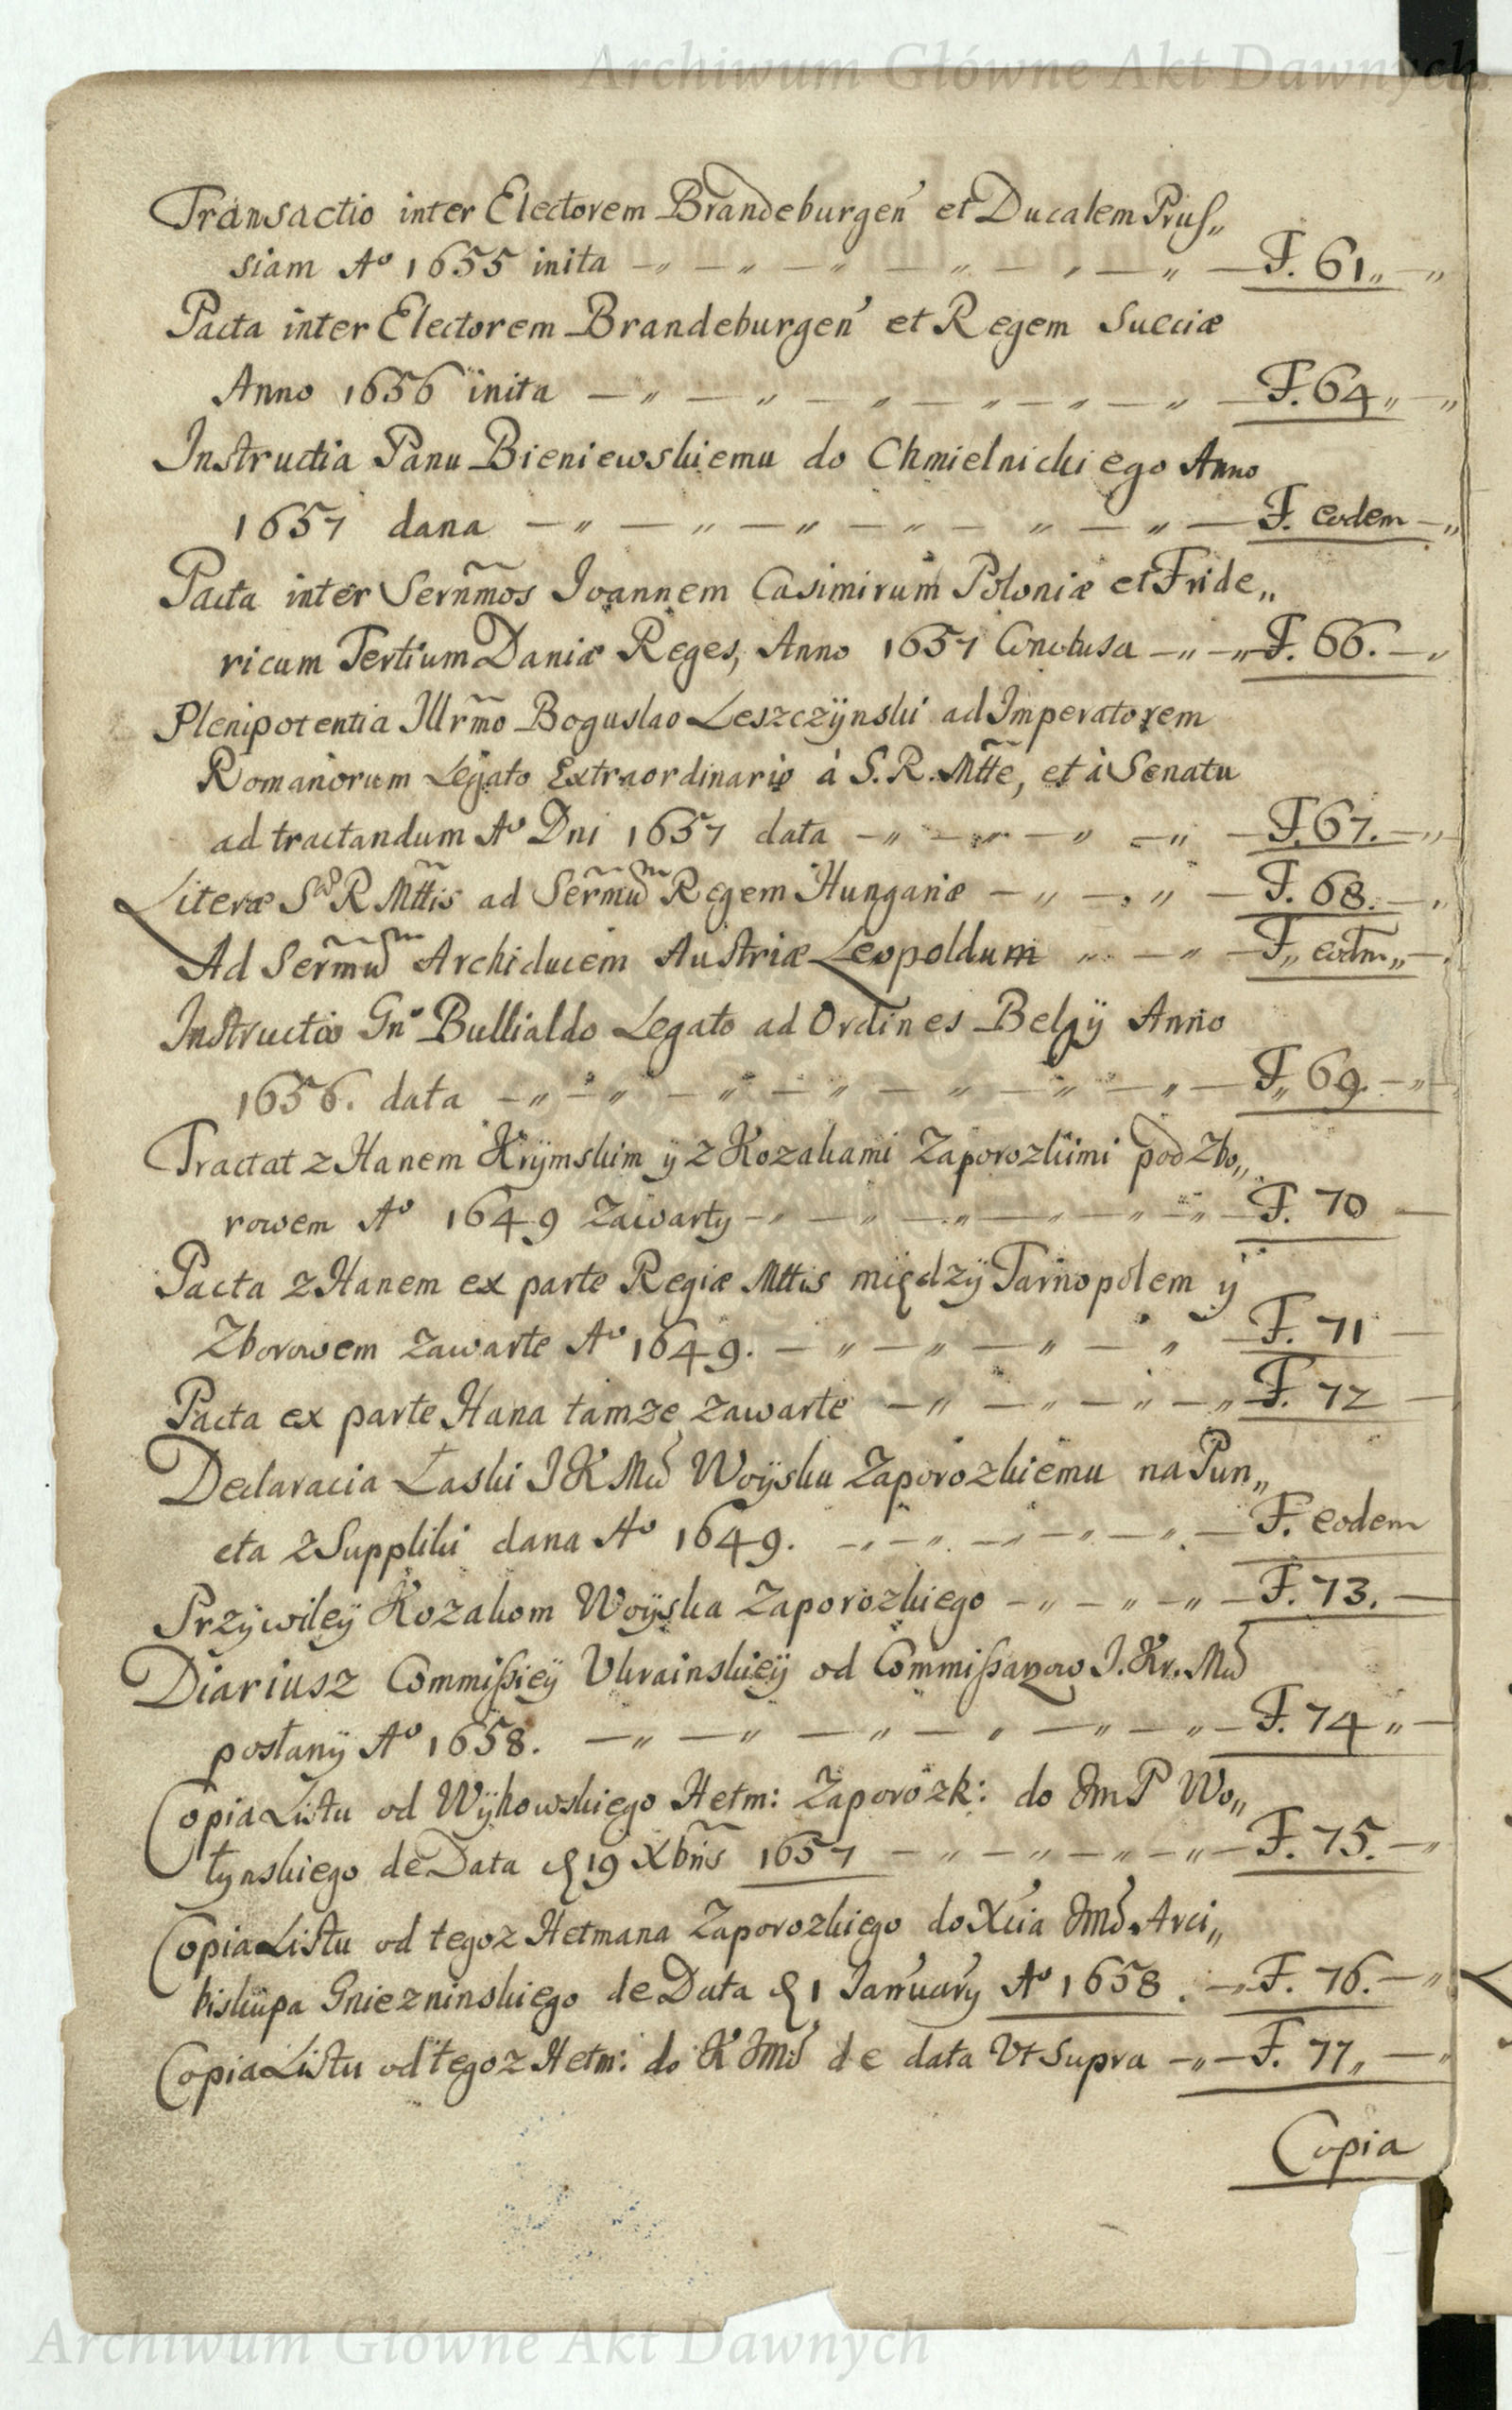 Archiwum Główne Akt Dawnych
Transactio inter Electorem Brandeburgen̄ et Ducalem Prus„
siam Aº 1655 inita —„—„—„—„—„—„— F. 61„—„
Pacta inter Electorem Brandeburgen̄ et Regem Sueciæ
Anno 1656 inita —„—„—„—„—„—„— F. 64„—„
Instructia Panu Bieniewskiemu do Chmielnickiego Anno
1657 dana —„—„—„—„—„—„— F. eodem—„
Pacta inter Sern̄mos Ioannem Casimirum Poloniæ et Fride„
ricum Tertium Daniæ Reges, Anno 1657 Conclusa —„—„ F. 66.—„
Plenipotentia Illr̄mo Boguslao Leszczÿnski ad Imperatorem
Romanorum Legato Extraordinario à S. R. Mtte, et à Senatu
ad tractandum Aº Dni 1657 data —„—„—„—„— F. 67.—„
Literæ S. R Mttis ad Serm̄u Regem Hungariæ —„—„— F. 68.—„
Ad Serm̄u Archiducem Austriæ Leopoldum „—„— F„ eodm„—
Instructio Gnº Bullialdo Legato ad Ordines Belgÿ Anno
1656. data —„—„—„—„—„—„—„— F„ 69.—„
Tractat z Hanem Krÿmskim ÿ z Kozakami Zaporozkimi pod Zbo„
rowem Aº 1649 zawarty —„—„—„—„—„—„— F. 70 —
Pacta z Hanem ex parte Regiæ Mttis międzÿ Tarnopolem ÿ
Zborowem zawarte Aº 1649. —„—„—„—„— F. 71 —
Pacta ex parte Hana tamze zawarte —„—„—„—„ F. 72 —
Declaracia Łaski I K Mći Woÿsku Zaporozkiemu na Pun„
cta z Suppliki dana Aº 1649. —„—„—„—„— F. eodem
Przÿwileÿ Kozakom Woÿska Zaporozkiego —„—„—„— F. 73. —
Diariusz Commissieÿ Ukrainskieÿ od Commissarzow I. Kr. Mći
posłanÿ Aº 1658. —„—„—„—„—„—„— F. 74„—
Copia Listu od Wÿhowskiego Hetm: Zaporozk: do Jm P Wo„
łynskiego de Data 19 Xbris 1657 —„—„—„—„— F. 75.—„
Copia Listu od tegoz Hetmana Zaporozkiego do Xćia Jmći Arci„
biskupa Gniezninskiego de Data 1 Ianuarÿ Aº 1658. —„ F. 76.—„
Copia Listu od tegoz Hetm: do K Jmći de data Ut Supra —„— F. 77„—„
Copia
Archiwum Główne Akt Dawnych